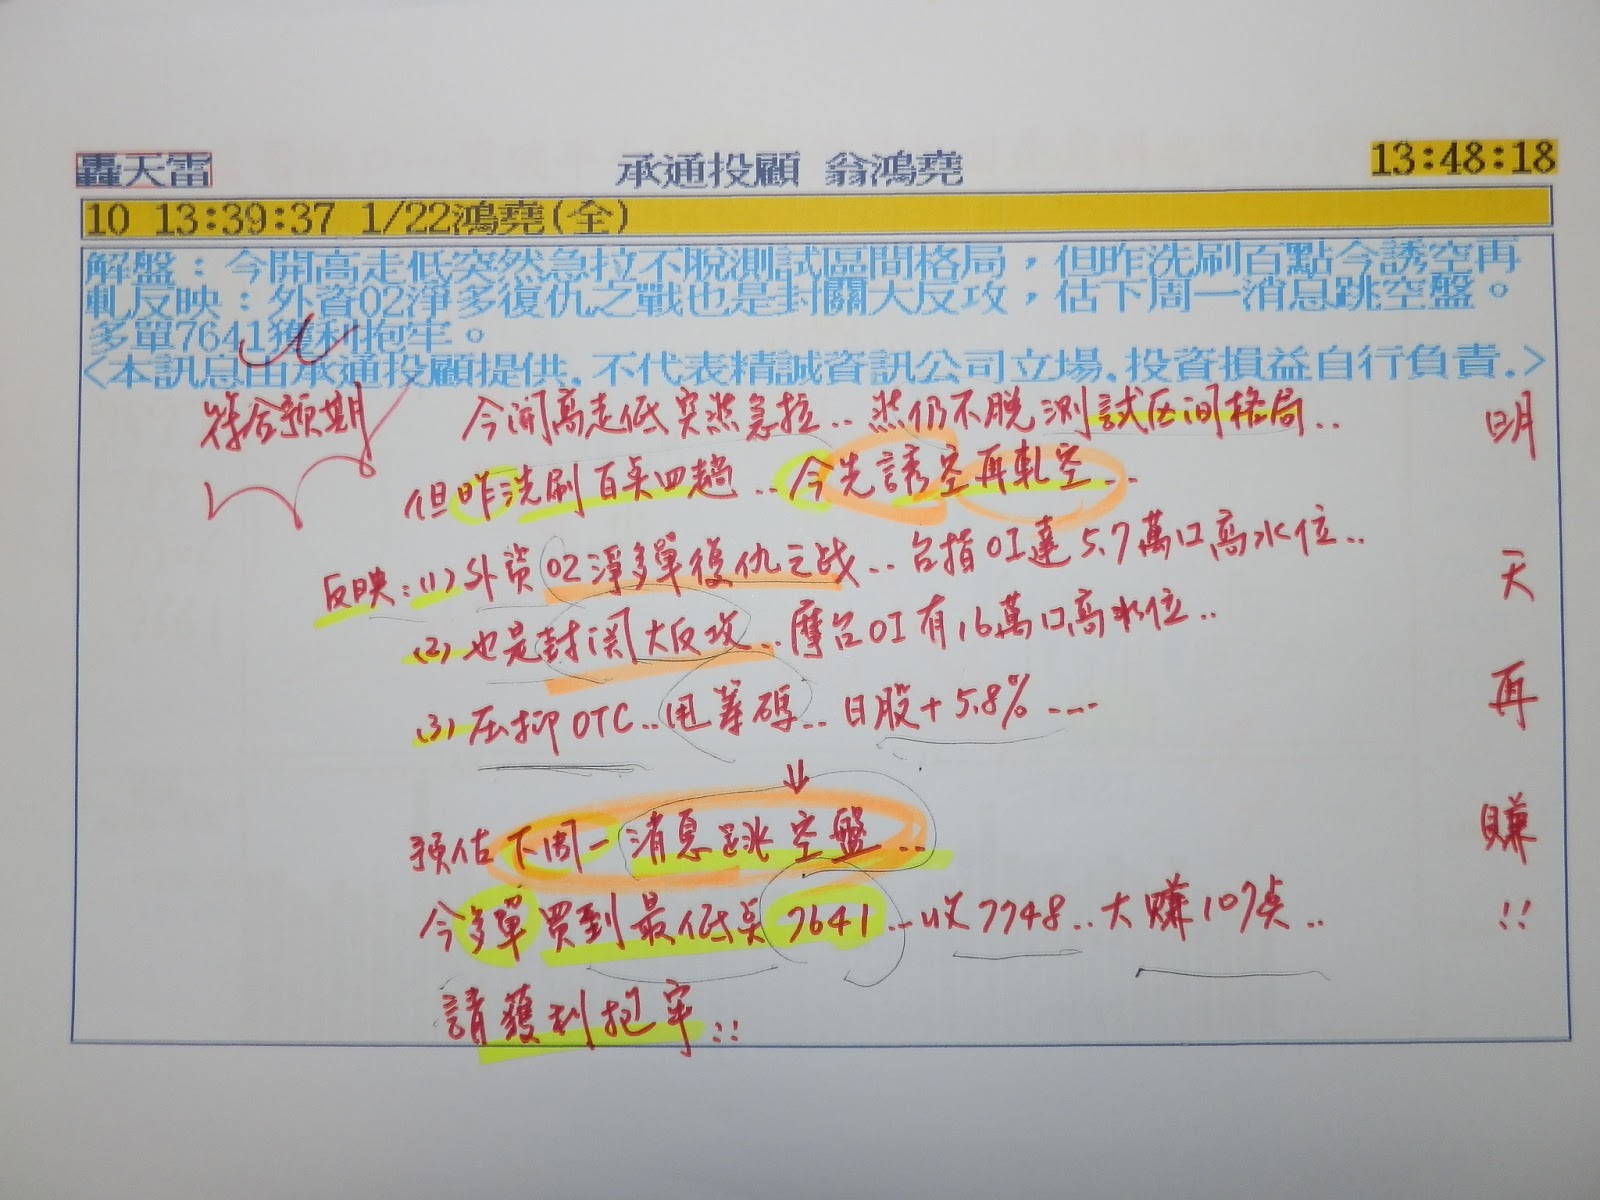 轟天雷 承通投顧 翁鴻堯 13:48:18
10 13:39:37 1/22鴻堯(全)
解盤：今開高走低突然急拉不脫測試區間格局，但昨洗刷百點今誘空再
軋反映：外資02淨多復仇之戰也是封關大反攻，估下周一消息跳空盤。
多單7641獲利抱牢。
<本訊息由承通投顧提供,不代表精誠資訊公司立場,投資損益自行負責.>
符合預期
今開高走低突然急拉..然仍不脫測試区间格局..
但昨洗刷百点四趟..今先誘空再軋空..
反映：(1)外資02淨多單復仇之战..台指OI達5.7萬口高水位..
(2)也是封関大反攻..摩台OI有16萬口高水位..
(3)压抑OTC..甩筹码..日股+5.8%....
↓
預估下周一消息跳空盤..
今多單買到最低点7641..收7748..大賺107点..
請獲利抱牢!!
明天再賺!!